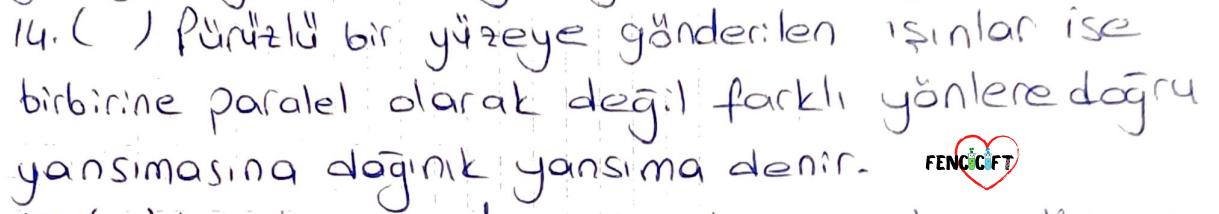 14. ( ) Pürüzlü bir yüzeye gönderilen ışınlar ise
birbirine paralel olarak değil farklı yönlere doğru
yansımasına dağınık yansıma denir.
FENCİCİFT